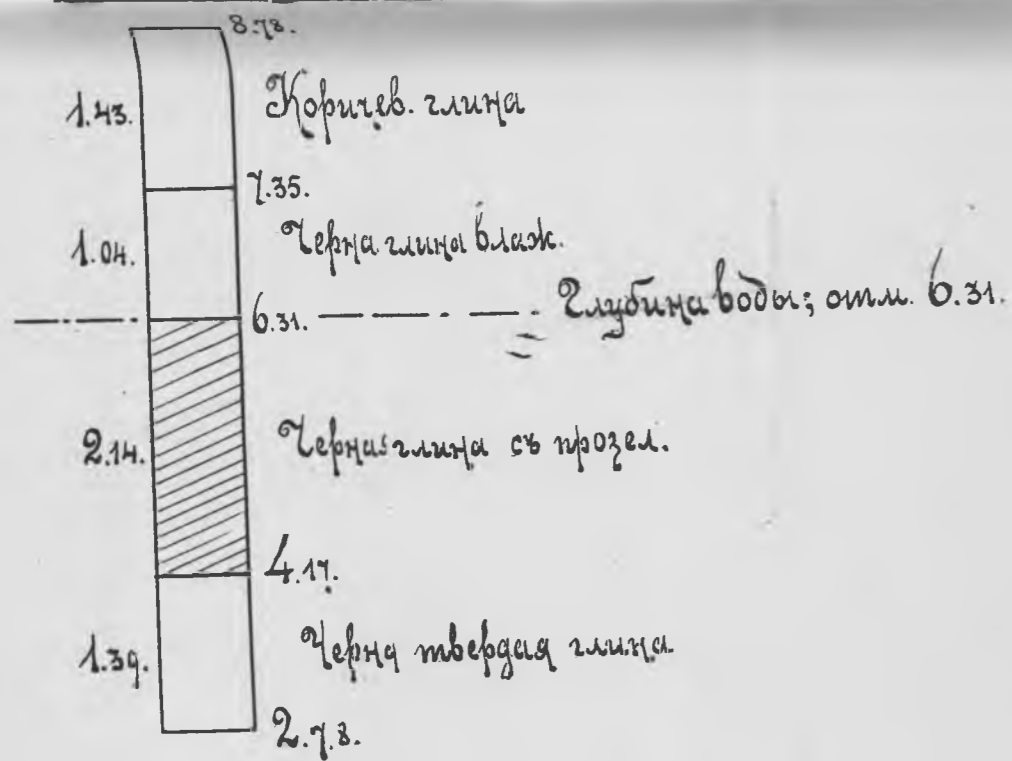 8.78.
1.43. Коричев. глина
7.35.
1.04. Черна глина влаж.
6.31. Глубина воды; отм. 6.31.
2.14. Черная глина съ прозел.
4.17.
1.39. Черна твердая глина
2.78.